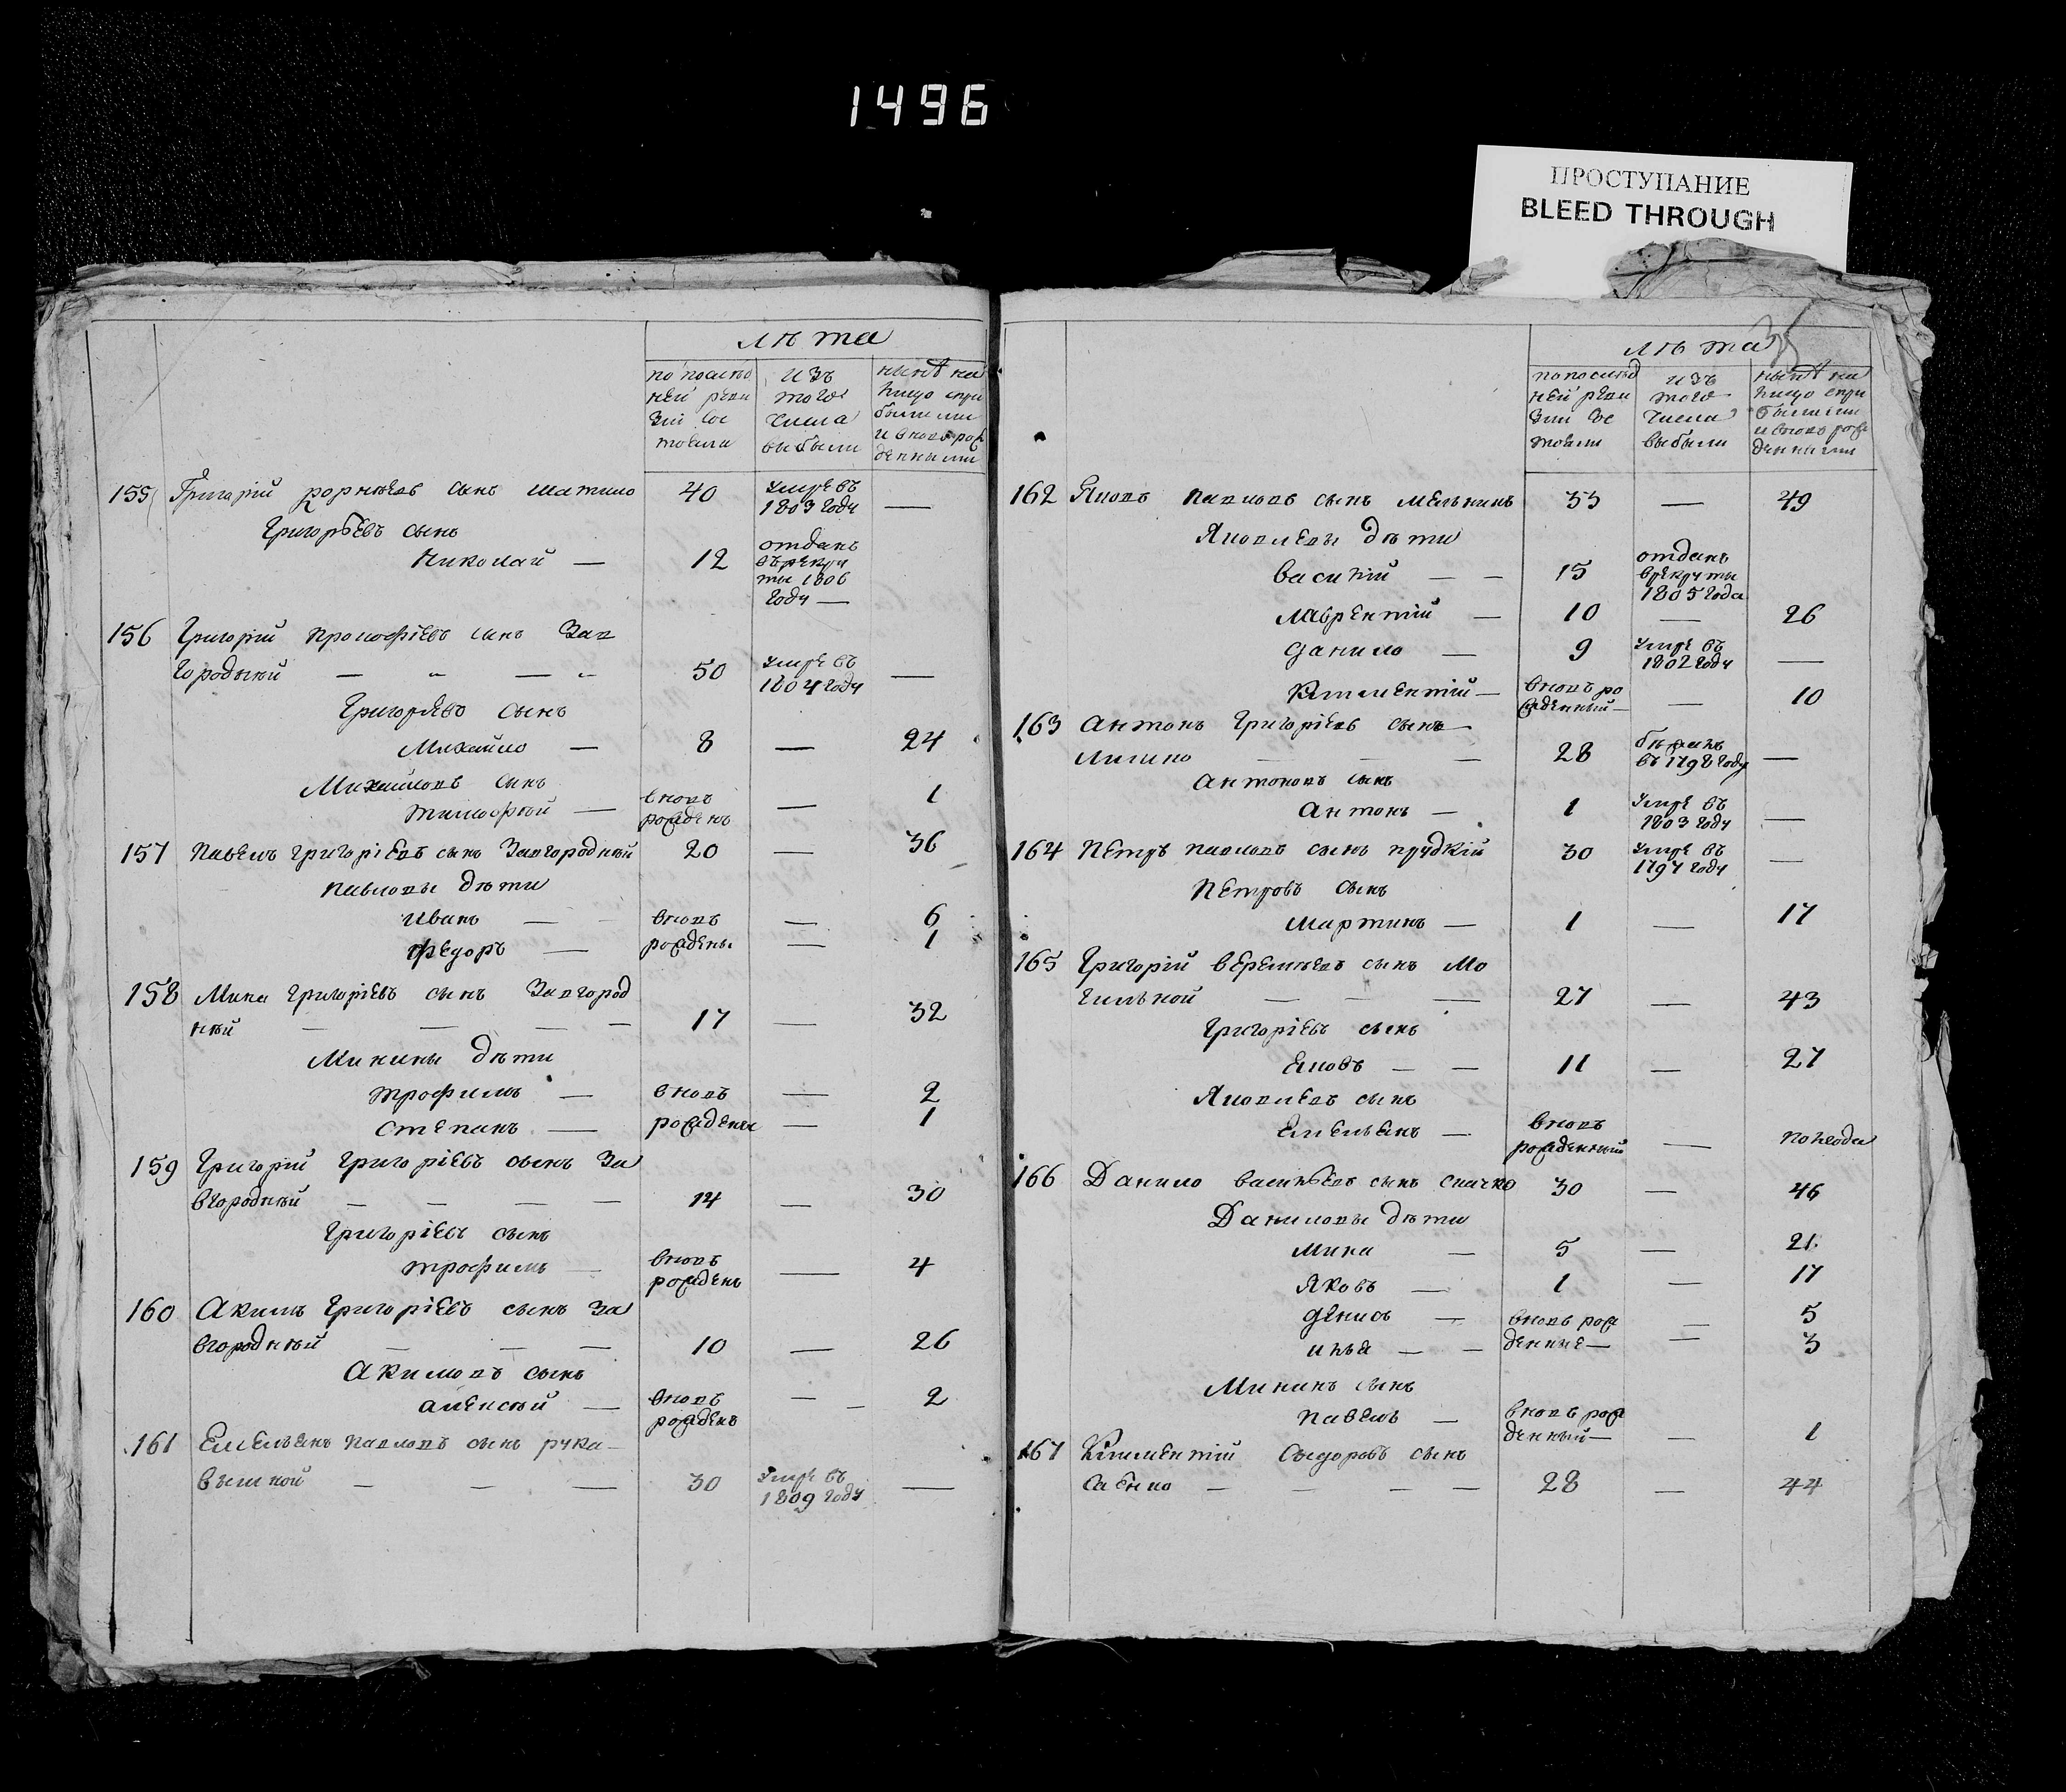 1496
ПРОСТУПАНИЕ
BLEED THROUGH
лѣта
по послѣд
ней реви
зіи сос
тояли
изъ
того
числа
выбыли
нынѣ на
лицо спри
былыми
и вновь рож
денными
155 Григорій сынъ 40 умре въ
1803 году —
Григорьевъ сынъ
Николай — 12 отданъ
въ рекру
ты 1806
году —
156 Григорій Прокофіевъ сынъ Зав
городный — — 50 умре въ
1804 году —
Григорьевъ сынъ
Михайло — 8 — 24
Михайловъ сынъ
Тимофѣй — вновь
рожденъ — 1
157 Павелъ Григоріевъ сынъ Завгородный 20 — 36
Павловы дѣти
Иванъ — вновь — 6
Федоръ — рождены — 1
158 Мина Григоріевъ сынъ Завгород
ный — — — — 17 — 32
Минины дѣти
Трофимъ — вновь — 2
Степанъ — рождены — 1
159 Григорій Григоріевъ сынъ За
вгородный — — — — 14 — 30
Григоріевъ сынъ
Трофимъ — вновь
рожденъ — 4
160 Акимъ Григоріевъ сынъ За
вгородный — — — 10 — 26
Акимовъ сынъ
Алексѣй — вновь
рожденъ — — 2
161 Емельянъ Павловъ сынъ рука—
вышной — — — 30 умре въ
1809 году —
35
лѣта
по послѣд
ней реви
зіи сос
тояли
изъ
того
числа
выбыли
нынѣ на
лицо спри
былыми
и вновь рож
денными
162 Яковъ Павловъ сынъ Мельникъ 33 — 49
Яковлевы дѣти
Василій — — 15 отданъ
врекруты
1805 года
Лаврентій — 10 — 26
Данило — 9 умре въ
1802 году —
Климентій — вновь ро
жденный — — 10
163 Антонъ Григоріевъ сынъ —
— — — 28
въ 1798 году —
Антоновъ сынъ
Антонъ — 1 умре въ
1803 году —
164 Петръ Павловъ сынъ прудкій 30 умре въ
1797 году —
Петровъ сынъ
Мартинъ — 1 — 17
165 Григорій Веремѣевъ сынъ Мо
гильной — — — 27 — 43
Григоріевъ сынъ
Яковъ — — 11 — 27
Яковлевъ сынъ
Емельянъ — вновь
рожденный — полгода
166 Данило Васильевъ сынъ Сличко 30 — 46
Даниловы дѣти
Мина — 5 — 21
Яковъ — 1 — 17
Денисъ — вновь рож — 5
Илья — — денные — — 3
Мининъ сынъ
Павелъ — вновь рож
денный — — 1
167 Климентій Сыдоровъ сынъ
— — — — 28 — 44